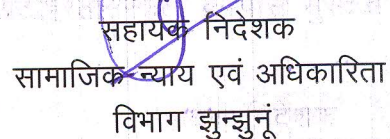 सहायक निदेशक
सामाजिक न्याय एवं अधिकारिता
विभाग झुन्झुनूं